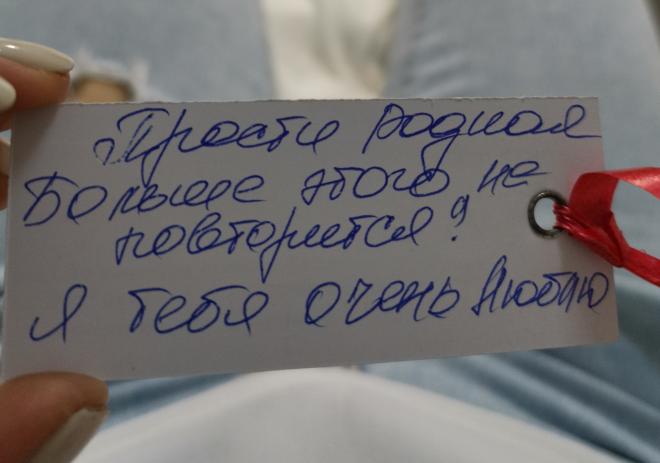 Прости родная
Больше этого не
повторится!
Я тебя очень люблю